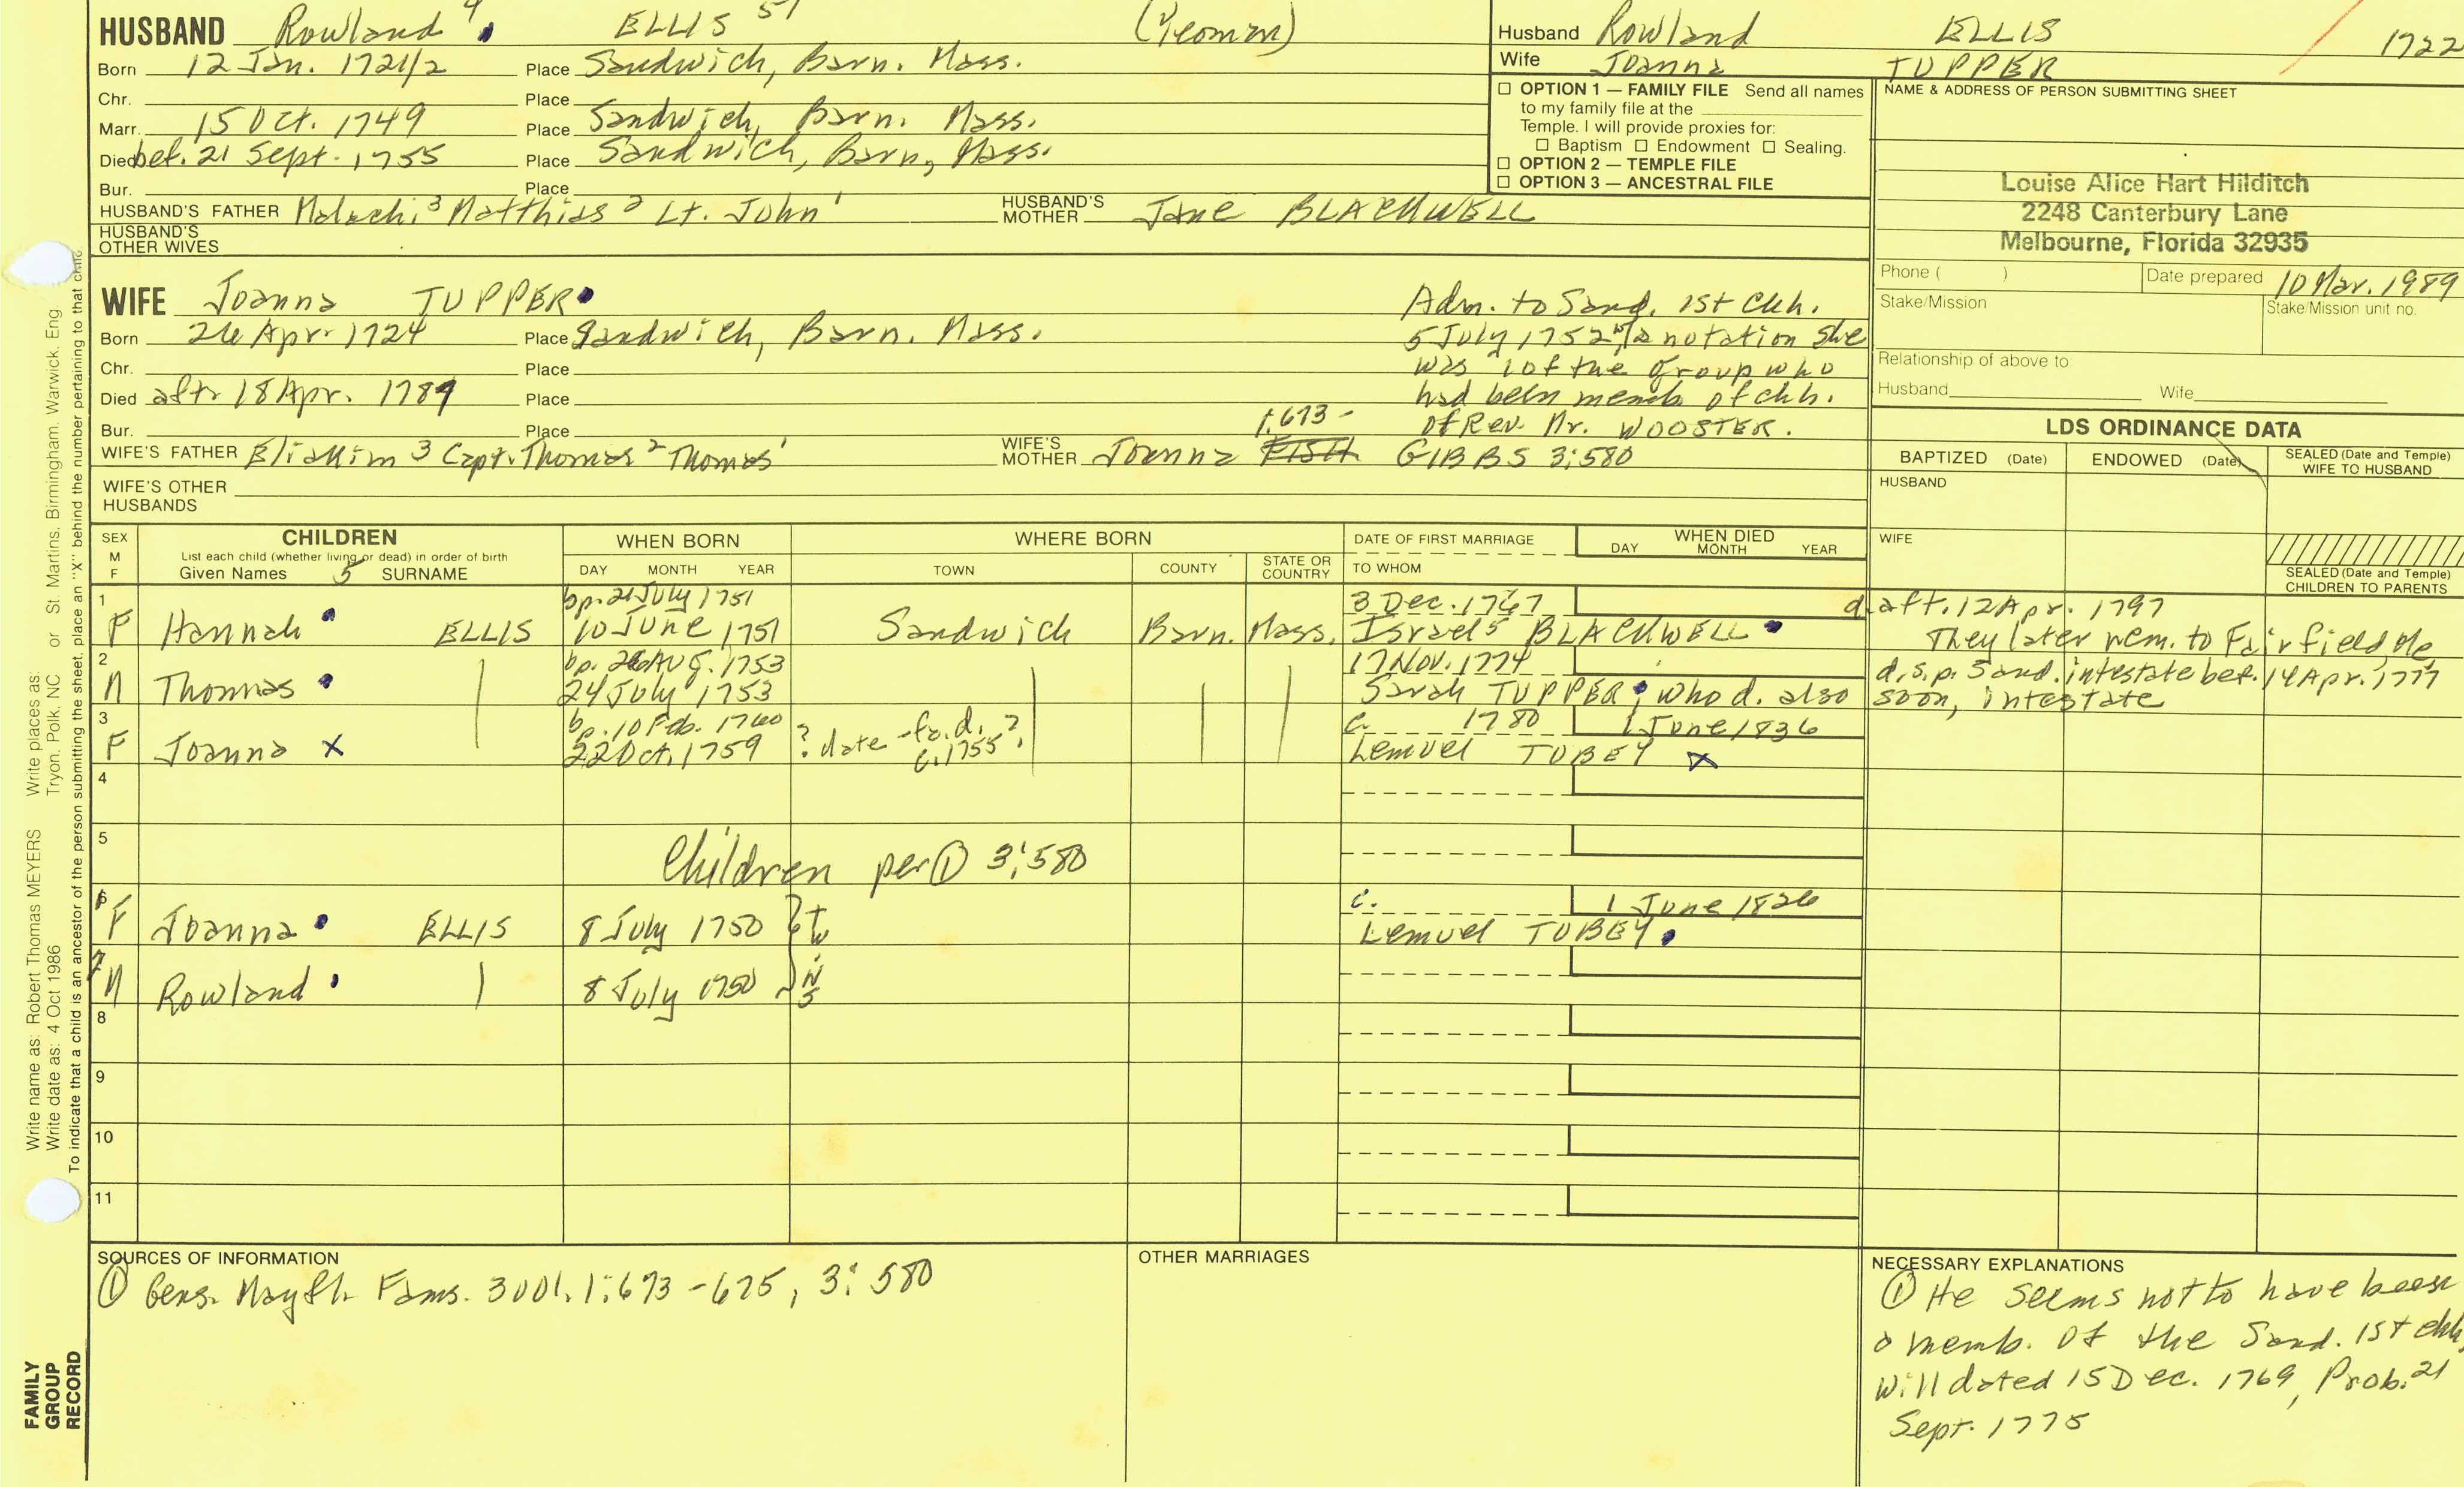 HUSBAND Rowland 4 ELLIS 51 (Yeoman)
Born 12 Jan. 1721/2 Place Sandwich, Barn. Mass.
Chr. Place
Marr. 15 Oct. 1749 Place Sandwich, Barn. Mass.
Died bef. 21 Sept. 1755 Place Sandwich, Barn, Mass.
Bur. Place
HUSBAND'S FATHER Malachi 3 Matthias 2 Lt. John 1 HUSBAND'S MOTHER Jane BLACKWELL
HUSBAND'S OTHER WIVES
Husband Rowland ELLIS 1722
Wife Joanna TUPPER
☐ OPTION 1 — FAMILY FILE Send all names
to my family file at the
Temple. I will provide proxies for:
☐ Baptism ☐ Endowment ☐ Sealing.
☐ OPTION 2 — TEMPLE FILE
☐ OPTION 3 — ANCESTRAL FILE
NAME & ADDRESS OF PERSON SUBMITTING SHEET
Louise Alice Hart Hilditch
2248 Canterbury Lane
Melbourne, Florida 32935
Phone ( ) Date prepared 10 Mar. 1989
Stake/Mission Stake/Mission unit no.
Relationship of above to
Husband Wife
WIFE Joanna TUPPER
Born 26 Apr. 1724 Place Sandwich, Barn. Mass.
Chr. Place
Died aft 18 Apr. 1789 Place
Bur. Place
WIFE'S FATHER Eliakim 3 Capt. Thomas 2 Thomas 1 WIFE'S MOTHER Joanna FISH GIBBS 3:580
1:673-
WIFE'S OTHER HUSBANDS
Adm. to Sand. 1st Chh.
5 July 1752 w/a notation she
was 1 of the group who
had been memb of chh.
of Rev. Mr. WOOSTER.
LDS ORDINANCE DATA
BAPTIZED (Date) ENDOWED (Date) SEALED (Date and Temple) WIFE TO HUSBAND
HUSBAND
WIFE
SEALED (Date and Temple) CHILDREN TO PARENTS
SEX M F CHILDREN WHEN BORN WHERE BORN DATE OF FIRST MARRIAGE WHEN DIED
List each child (whether living or dead) in order of birth
Given Names 5 SURNAME DAY MONTH YEAR TOWN COUNTY STATE OR COUNTRY TO WHOM DAY MONTH YEAR
1 bp. 21 July 1751 3 Dec. 1767 d. aft. 12 Apr. 1797
F Hannah ELLIS 10 June 1751 Sandwich Barn. Mass. Israel 5 BLACKWELL They later rem. to Fairfield, Me
2 bp. 26 Aug. 1753 17 Nov. 1774 d.s.p. Sand. intestate bef. 14 Apr. 1777
M Thomas 24 July 1753 Sarah TUPPER, who d. also soon, intestate
3 bp. 10 Feb. 1760 c. 1780 1 June 1836
F Joanna X 22 Oct. 1759 ? date - fa. d. c. 1755? Lemuel TOBEY X
4
5 Children per ① 3:580
6 c. 1 June 1826
F Joanna ELLIS 8 July 1750 Lemuel TOBEY
twins
7
M Rowland 8 July 1750
8
9
10
11
SOURCES OF INFORMATION
① Gens. Mayfl. Fams. 3 vol. 1:673-675, 3:580
OTHER MARRIAGES
NECESSARY EXPLANATIONS
① He seems not to have been
a memb. of the Sand. 1st chh,
Will dated 15 Dec. 1769, Prob. 21
Sept. 1775
Write name as: Robert Thomas MEYERS Write places as:
Write date as: 4 Oct 1986 Tryon, Polk, NC or St. Martins, Birmingham, Warwick, Eng.
To indicate that a child is an ancestor of the person submitting the sheet, place an "X" behind the number pertaining to that child.
FAMILY
GROUP
RECORD